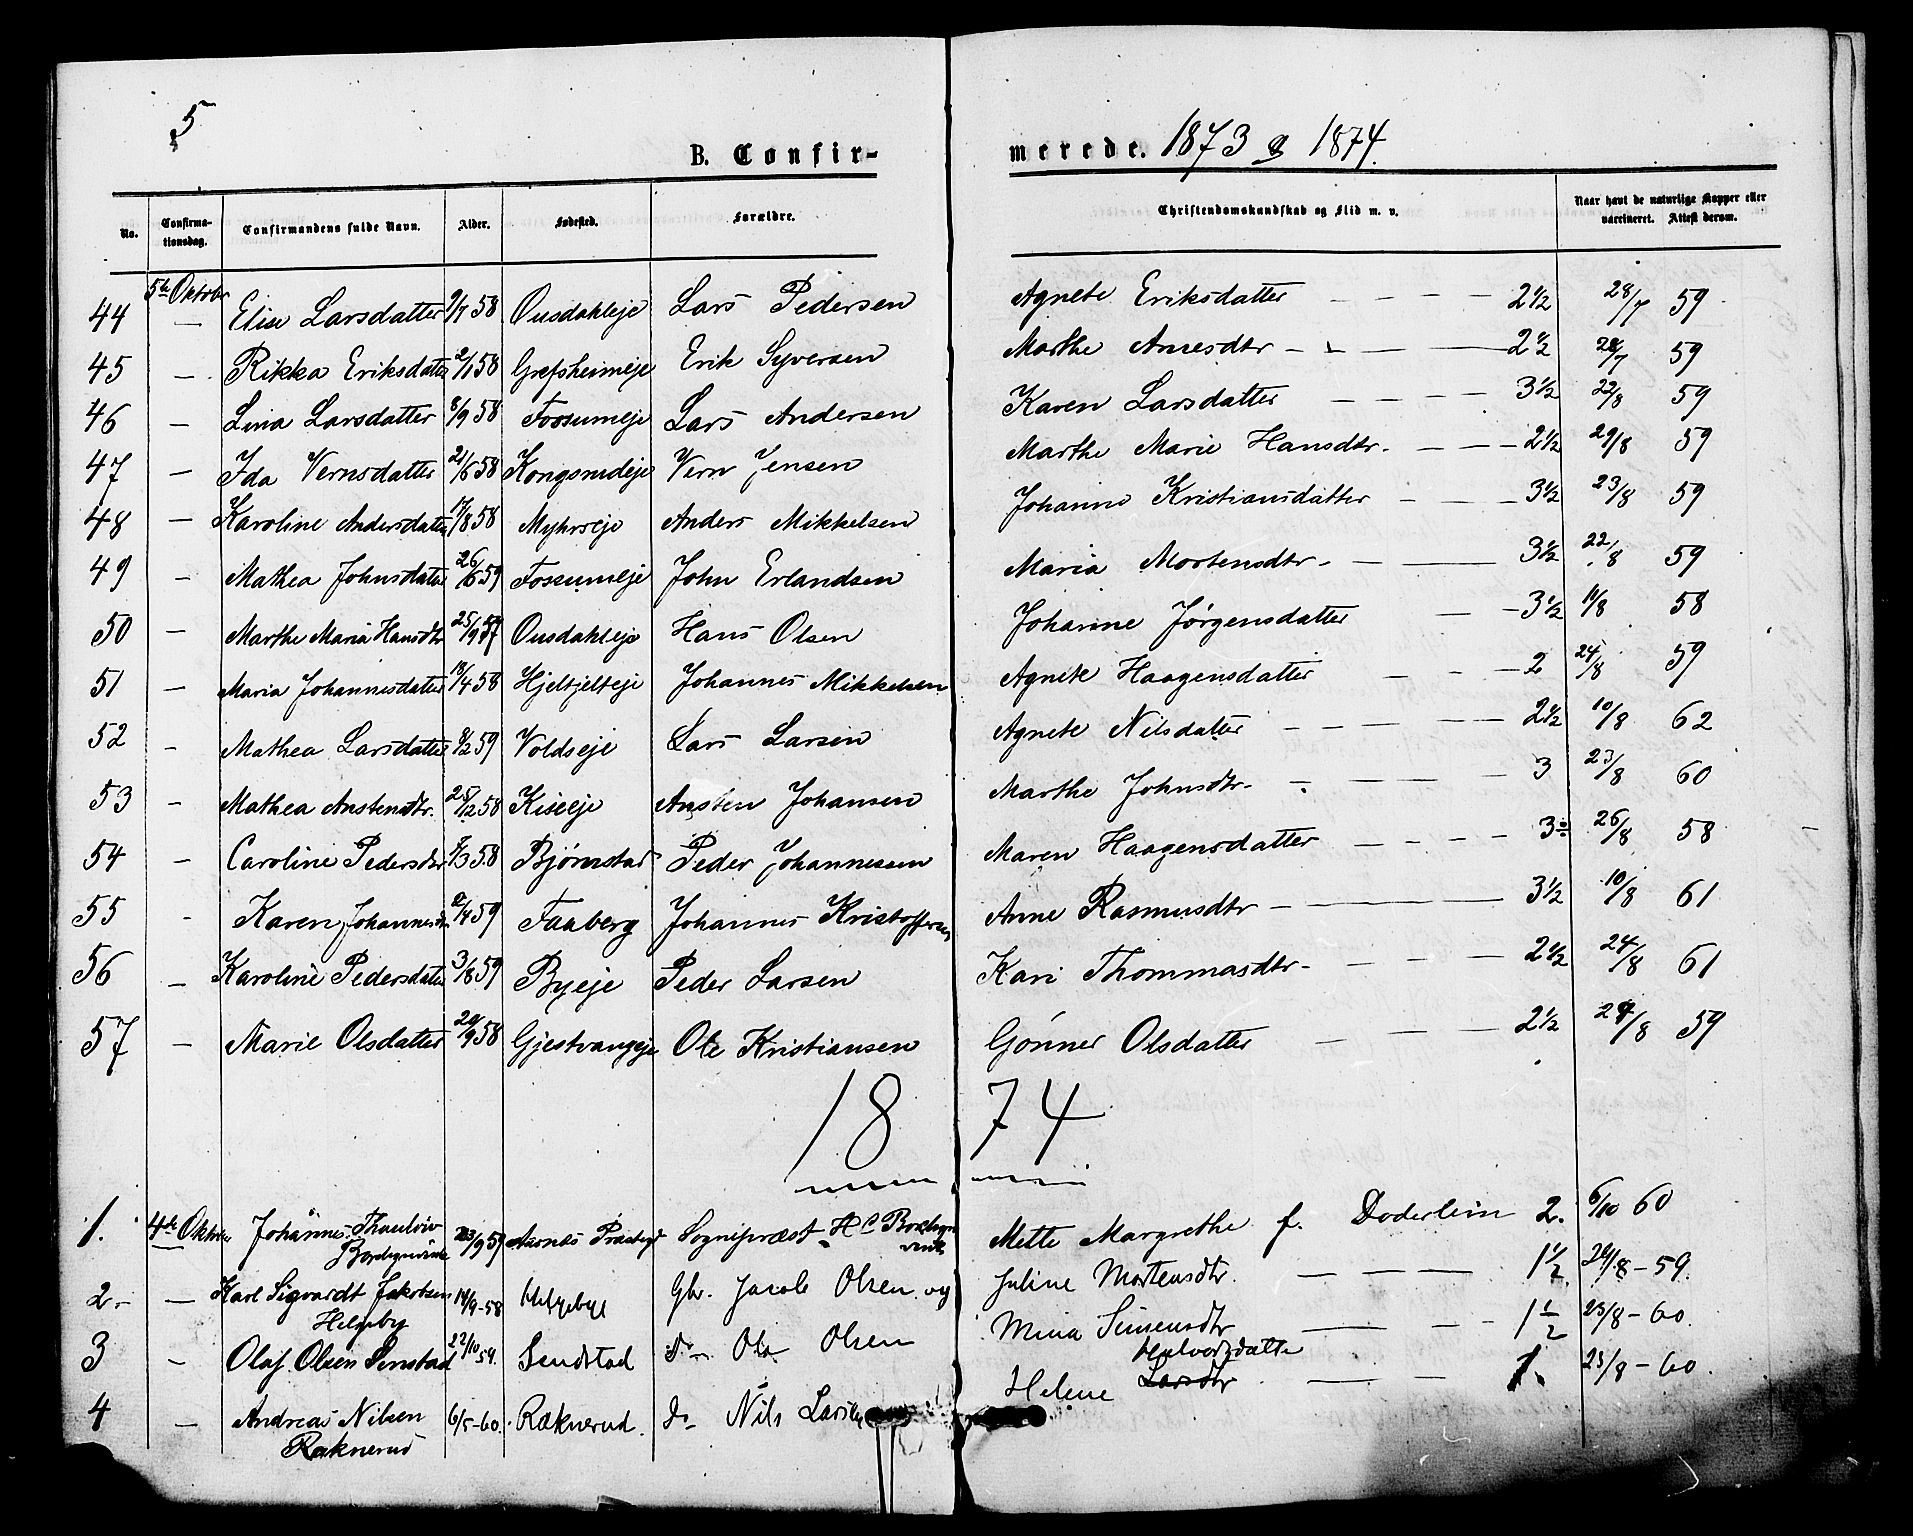 5
B. Confir- merede. 1873 & 1874.
No. Confirma-tionsdag. Confirmandens fulde Navn. Alder. Fødested. Forældre. Christendomskundskab og Flid m. v. Naar havt de naturlige Kopper eller vaccineret. Attest derom.
5te Oktober
44 — Elise Larsdatter 9/7 58 Ousdahleje Lars Pedersen Agnete Eriksdatter — — — — 2½ 28/7 59
45 — Rikka Eriksdatter 2/1 58 Grefsheimeje Erik Syversen Marthe Arnesdtr — — — — 2½ 28/7 59
46 — Lina Larsdatter 8/9 58 Fossumeje Lars Andersen Karen Larsdatter — — — — 3½ 22/8 59
47 — Ida Vernsdatter 21/6 58 Kongsrudeje Vern Jensen Marthe Marie Hansdtr. — — — 2½ 29/8 59
48 — Karoline Andersdatter 17/8 58 Myhrseje Anders Mikkelsen Johanne Kristiansdatter — — — 3½ 23/8 59
49 — Mathea Johnsdatter 26/6 59 Fossumeje John Erlandsen Maria Mortensdtr — — — 3½ 22/8 59
50 — Marthe Maria Hansdtr 25/9 57 Ousdahleje Hans Olsen Johanne Jørgensdatter — — 3½ 11/8 58
51 — Maria Johannesdatter 18/4 58 Hjeltjelteje Johannes Mikkelsen Agnete Haagensdatter — — — 2 24/8 59
52 — Mathea Larsdatter 8/2 59 Voldseje Lars Larsen Agnete Nilsdatter — — — — 2½ 10/8 62
53 — Mathea Anstensdtr. 28/12 58 Kiseeje Ansten Johansen Marthe Johnsdtr. — — — — 3 23/8 60
54 — Caroline Pedersdtr 7/3 58 Bjørnstad Peder Johannessen Maren Haagensdatter — — — — 3÷ 26/8 58
55 — Karen Johannesdtr 2/4 59 Faaberg Johannes Kristoffersen Anne Rasmusdtr — — — — 3½ 10/8 61
56 — Karoline Pedersdatter 3/8 59 Byeje Peder Larsen Kari Thommasdtr — — — — 2½ 24/8 61
57 — Marie Olsdatter 20/9 58 Gjestvangeje Ole Kristiansen Gønner Olsdatter — — — 2½ 28/8 59
1874
1. 4de Oktober Johannes Thaulow 23/9 59 Aasnæs Præstegd Sognepræst H. C. Borchgre- Mette Margrethe f. Døderlein 2. 6/10 60
Borchgrevink vink
2. — Karl Sigvardt Jakobsen 14/9-58 Helgebye Gbr. Jacob Olsen og Juline Mortensdtr. — — — 1½ 24/8-59.
Helgeby
3 — Olaf Olsen Senstad 22/10 59. Sendstad do Ole Olsen Mina Simensdtr — — — 1½ 23/8-60.
Halvorsdatter
4 — Andreas Nilsen 6/5-60. Ræknerud. do Nils Larsen Helene Larsdtr — — — 1. 23/8-60.
Ræknerud